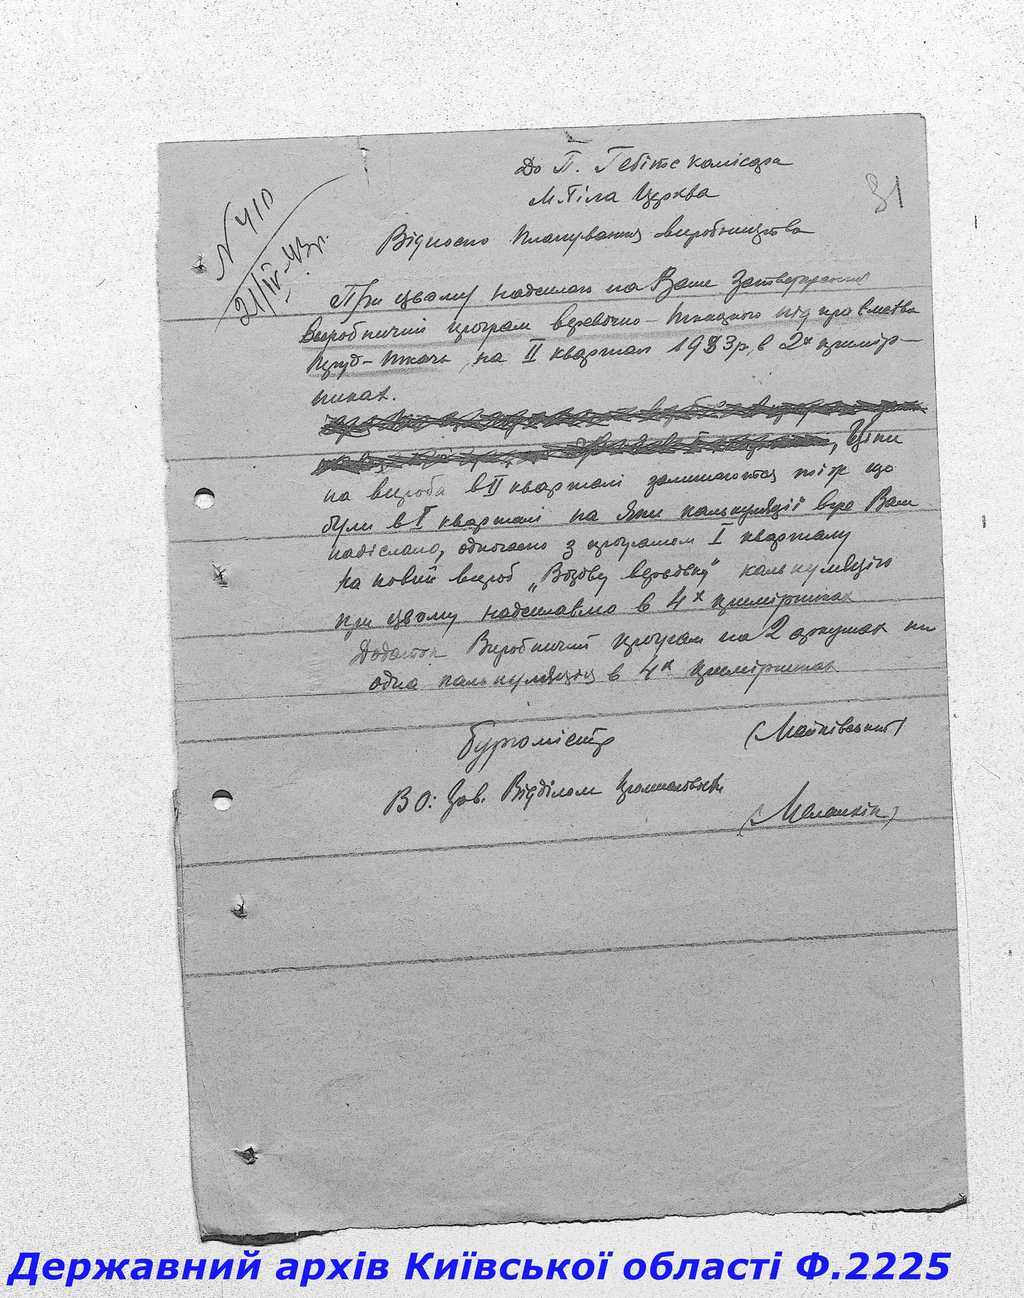 До П. Гебітс комісара
М. Біла Церква
81
N 410
21/IV-43р.
Відносно планування виробництва
При цьому надсилаю на Ваше Затвердження
Виробничий програм веревочно-ткацького підприємства
на II квартал 1943р, в 2х примір-
никах.
, Ціни
на вироби в II кварталі залишаются тіж що
були в I кварталі на які калькуляції вже Вам
надіслано, одночасно з програмом I кварталу
на новий вироб „Возову верьовку" калькуляцію
при цьому надсилаємо в 4х примірниках
Додаток Виробничий програм на 2 аркушах
одна калькуляція в 4х примірниках
Бургомістр (Майківський)
ВО: Зав. Відділом Промисловості
(Маланкін)
Державний архів Київської області Ф.2225